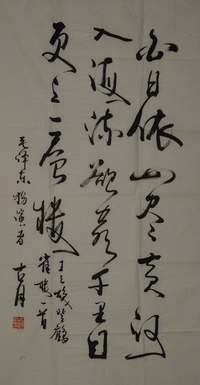 白日依山尽黄河
入海流欲穷千里目
更上一层楼
王之涣登鹳
雀楼一首
毛泽东扮演者
古月